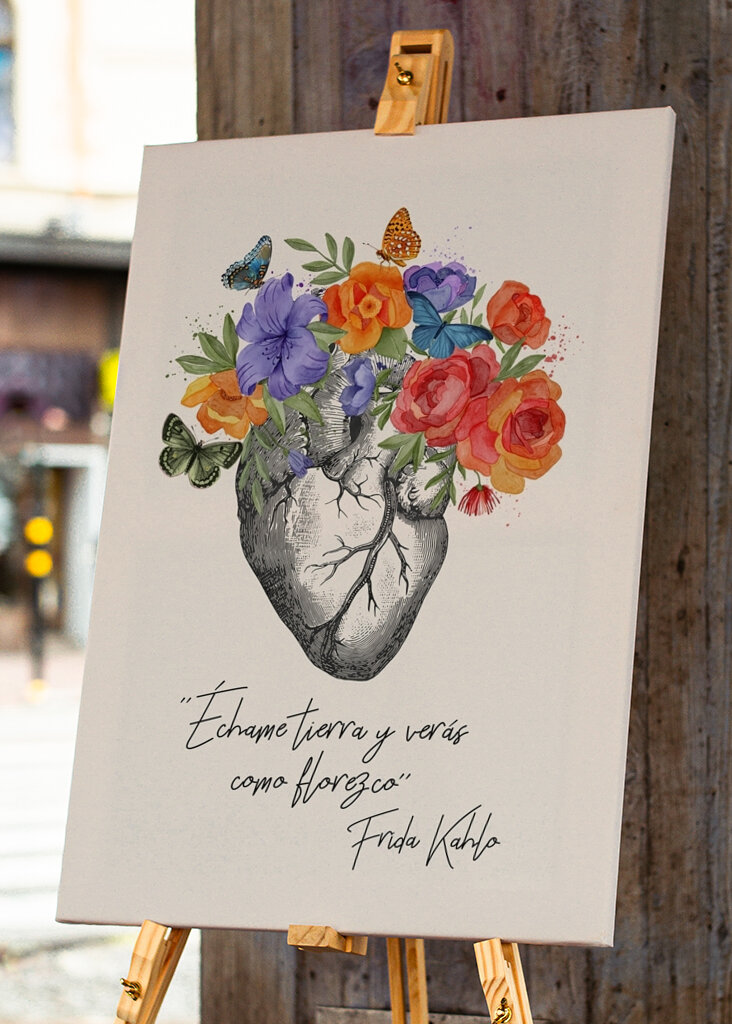 "Échame tierra y verás
como florezco"
Frida Kahlo